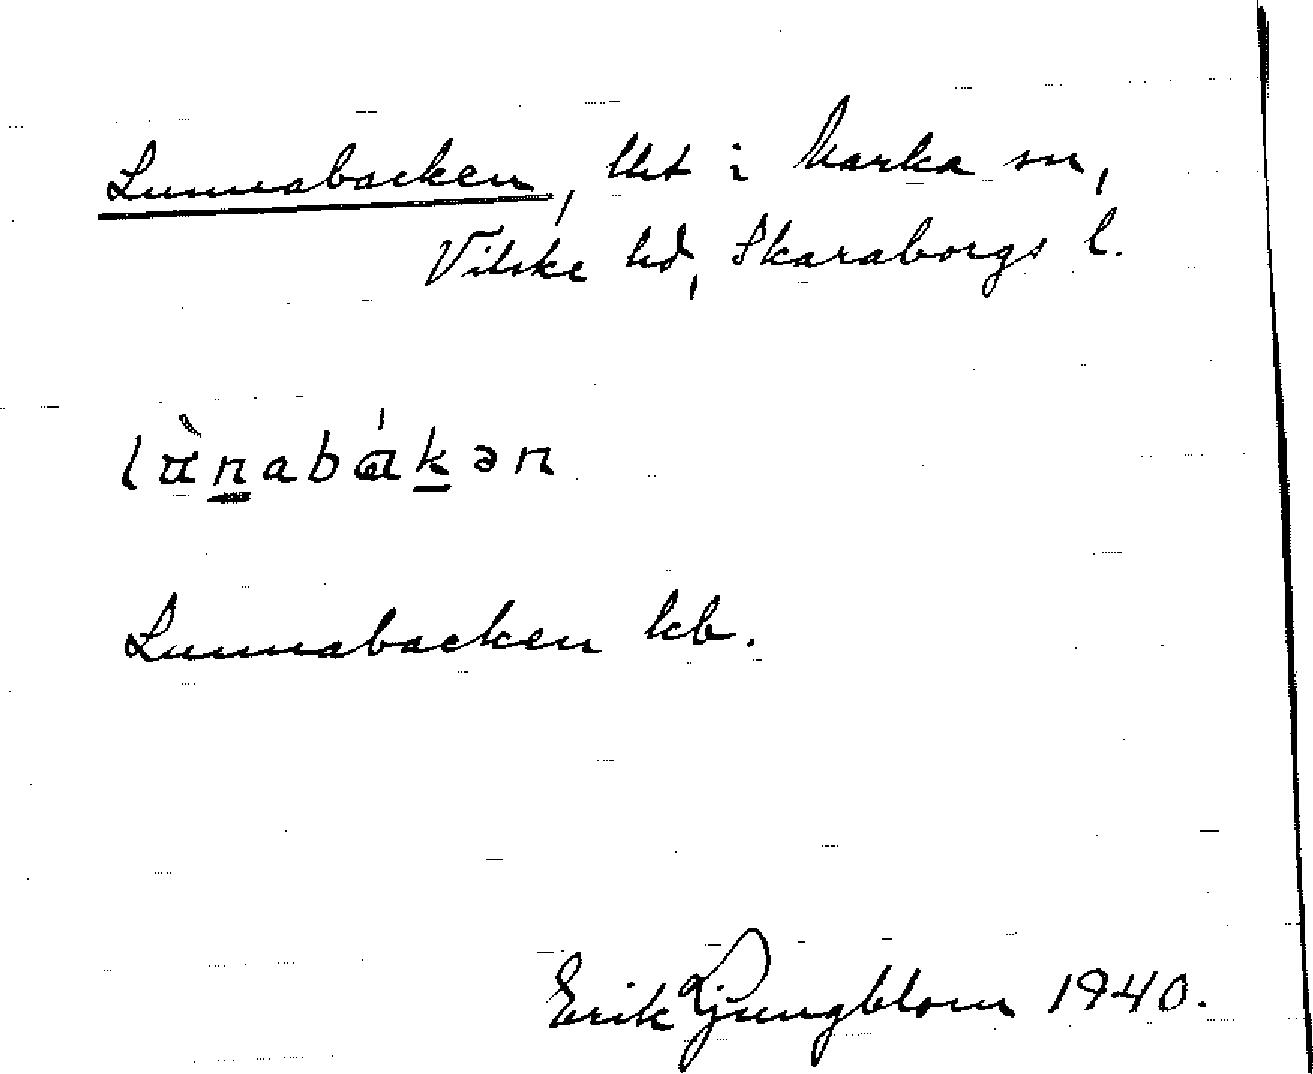 Lunnabacken, lht i Marka sn,
Vilske hd, Skaraborgs l.
lὰn̲abɑ́k̲ən
Lunnabacken kb.
Erik Ljungblom 1940.